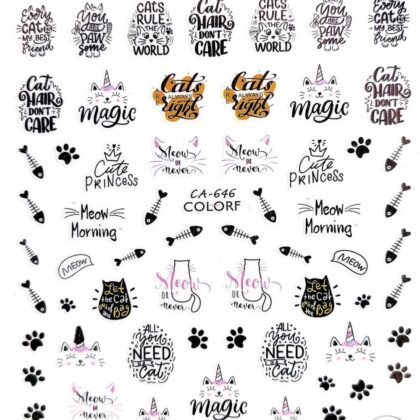 Every
CAT is
MY BEST
Friend
You
ARE
PAW
Some
CATS
RULE THE
WORLD
Cat
HAIR
DON'T
CARE
CATS
RULE THE
WORLD
You
ARE
PAW
Some
Every
CAT is
MY BEST
Friend
Cat
HAIR
DON'T
CARE
magic
Cats
ALWAYS
Right
Cats
ALWAYS
Right
magic
Cat
HAIR
DON'T
CARE
Cute
PRINCESS
Meow
OR
never
Meow
OR
never
Cute
PRINCESS
Meow
Morning
CA-646
COLORF
Meow
Morning
MEOW
Let
the Cat
Out of
Bag
Meow
OR
never
Meow
OR
never
Let
the Cat
Bag
MEOW
ALL
You
NEED
is
Cat
ALL
You
NEED
is
Cat
Meow
OR
never
magic
Meow
OR
never